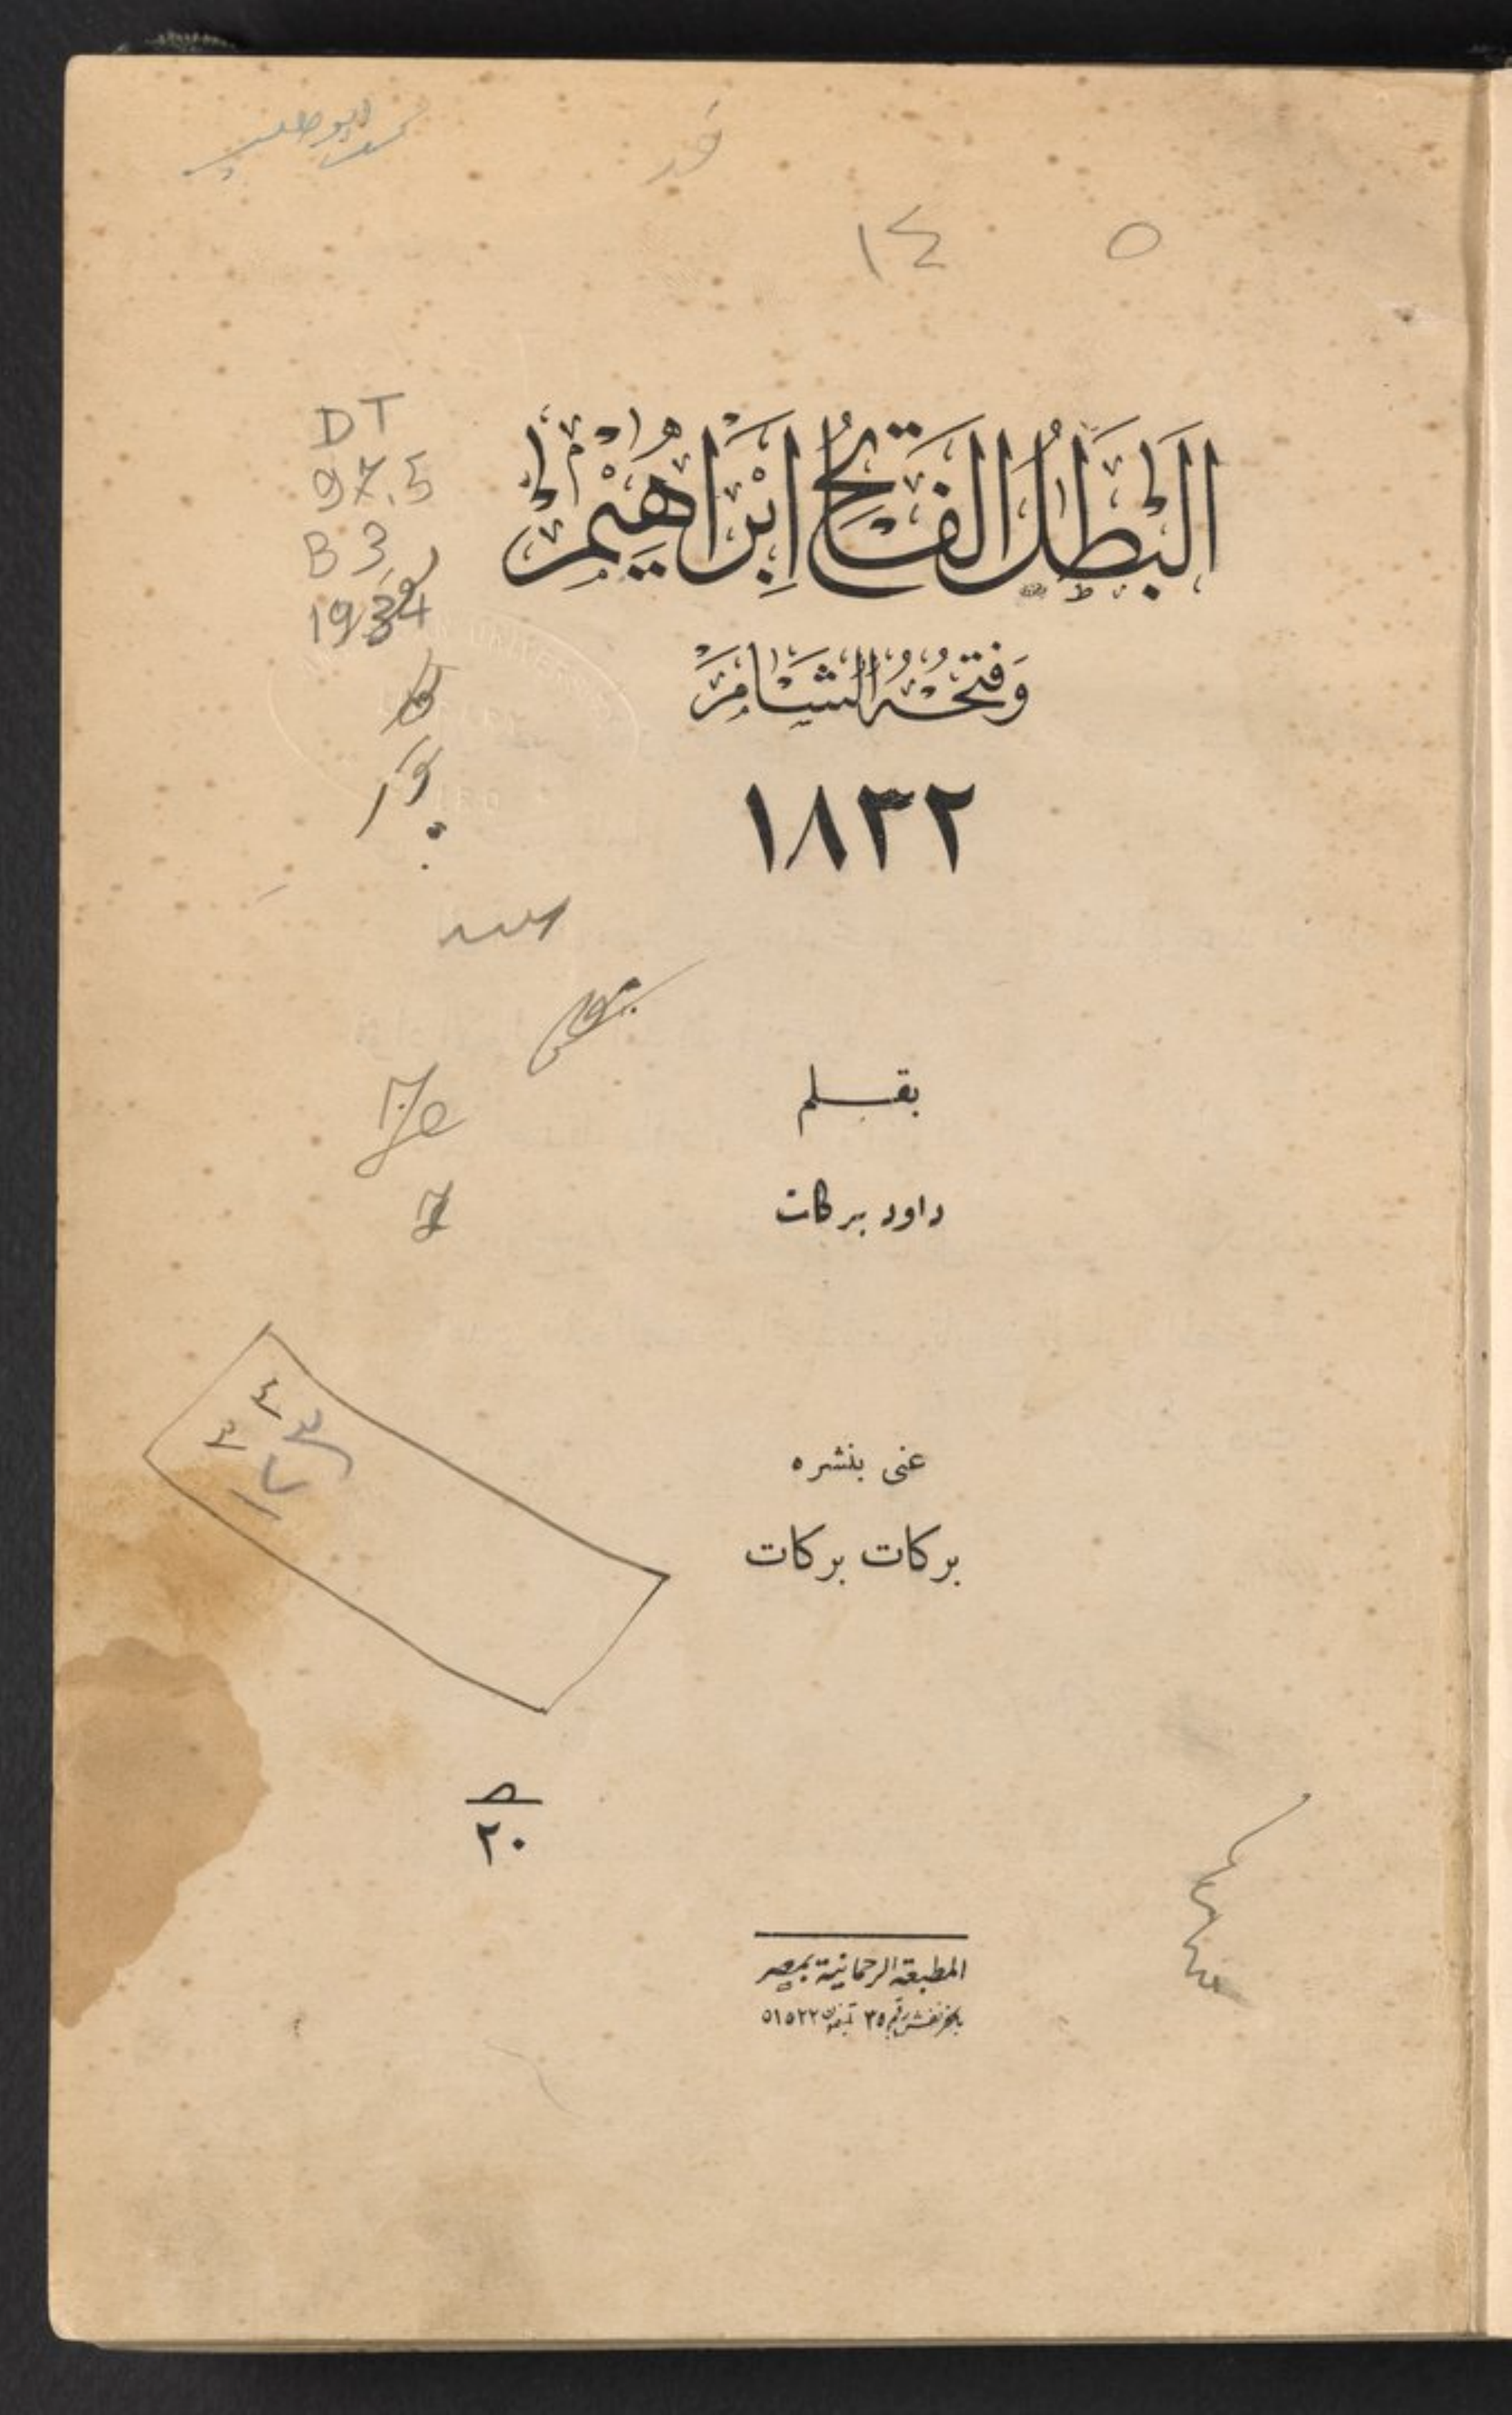 ١٤ ٥
DT
97.5
B3
1934
البَطَلُ الفَاتِحُ اِبْرَاهِيْمُ
وَفَتْحُهُ الشَّامَ
١٨٣٢
بقلم
داود بركات
عنى بنشره
بركات بركات
٢٠
المطبعة الرحمانية بمصر
بالخرنفش رقم ٣٥ تليفون ٥١٥٢٢